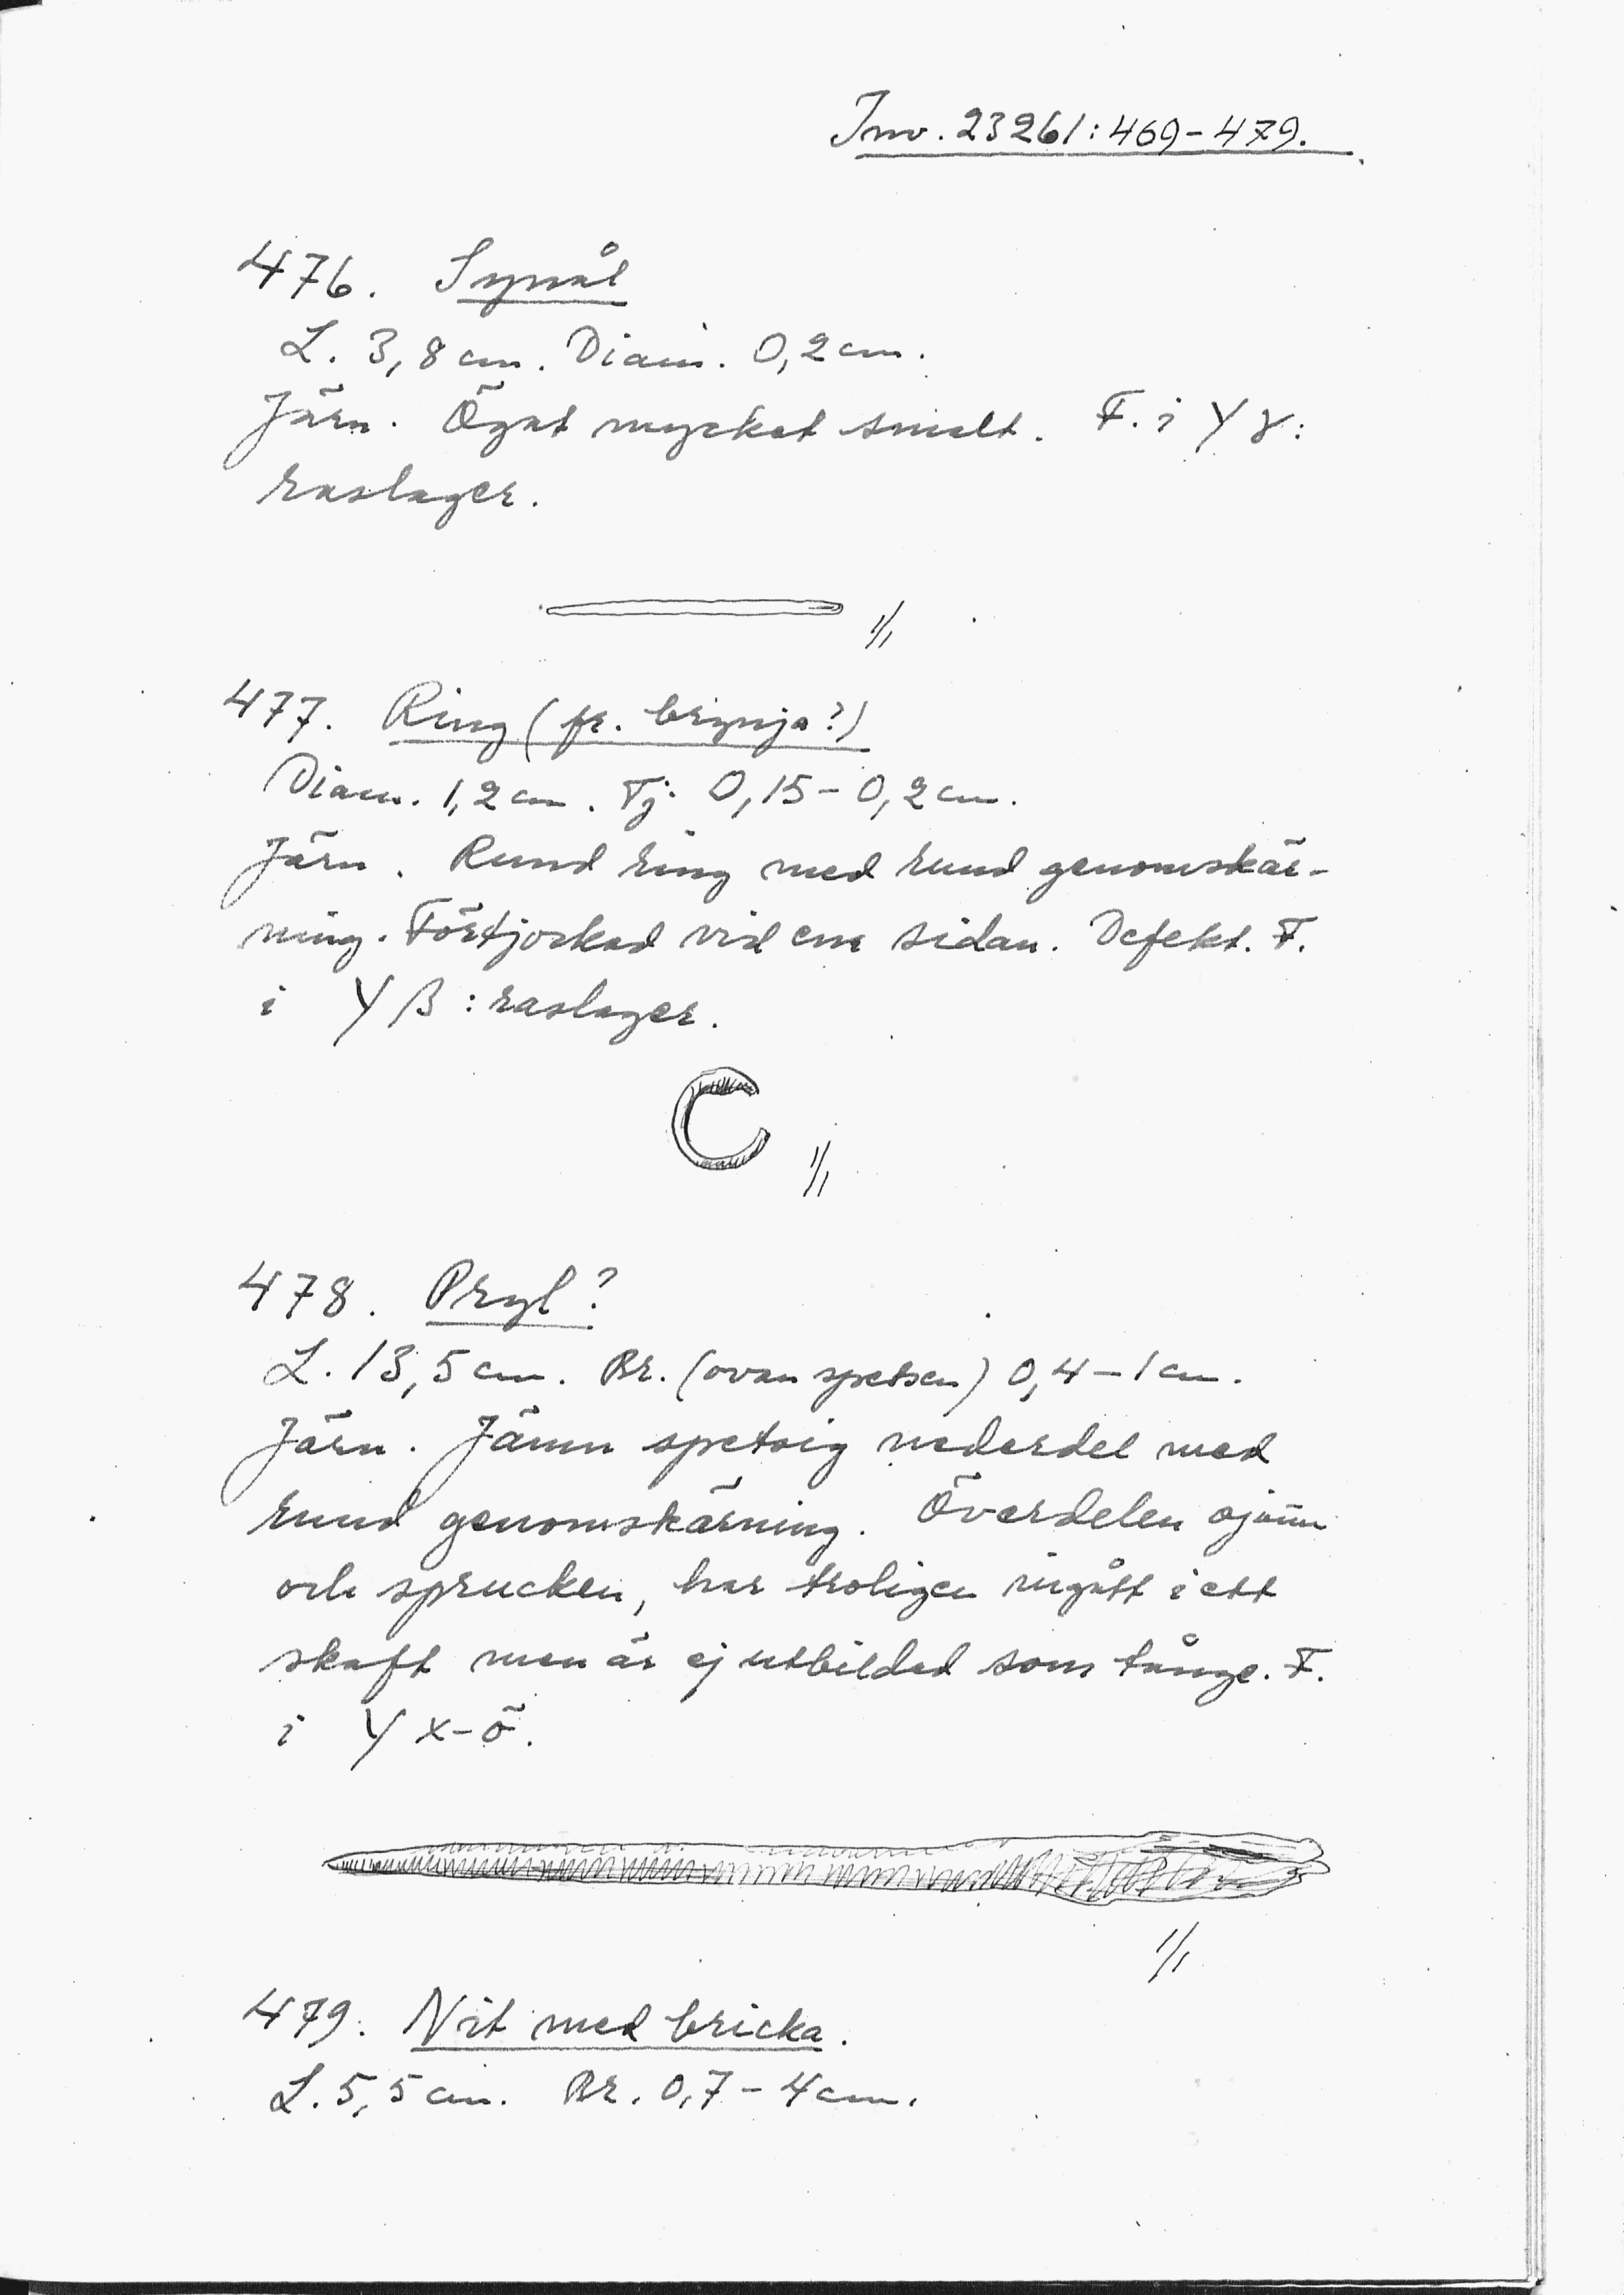 Inv. 23261:469-479.
476. Synål
L. 3,8 cm. Diam. 0,2 cm.
Järn. Ögat mycket smalt. F. i Y γ:
raslager.
1/1
477. Ring (fr. brynja?)
Diam. 1,2 cm. Tj. 0,15-0,2 cm.
Järn. Rund ring med rund genomskär-
ning. Förtjockad vid ena sidan. Defekt. F.
i Y β: raslager.
1/1
478. Pryl?
L. 13,5 cm. Br. (ovan spetsen) 0,4-1 cm.
Järn. Jämn spetsig nederdel med
rund genomskärning. Överdelen ojämn
och sprucken, har troligen ingått i ett
skaft men är ej utbildad som tånge. F.
i Y x-ö.
1/1
479. Nit med bricka.
L. 5,5 cm. Br. 0,7-4 cm.